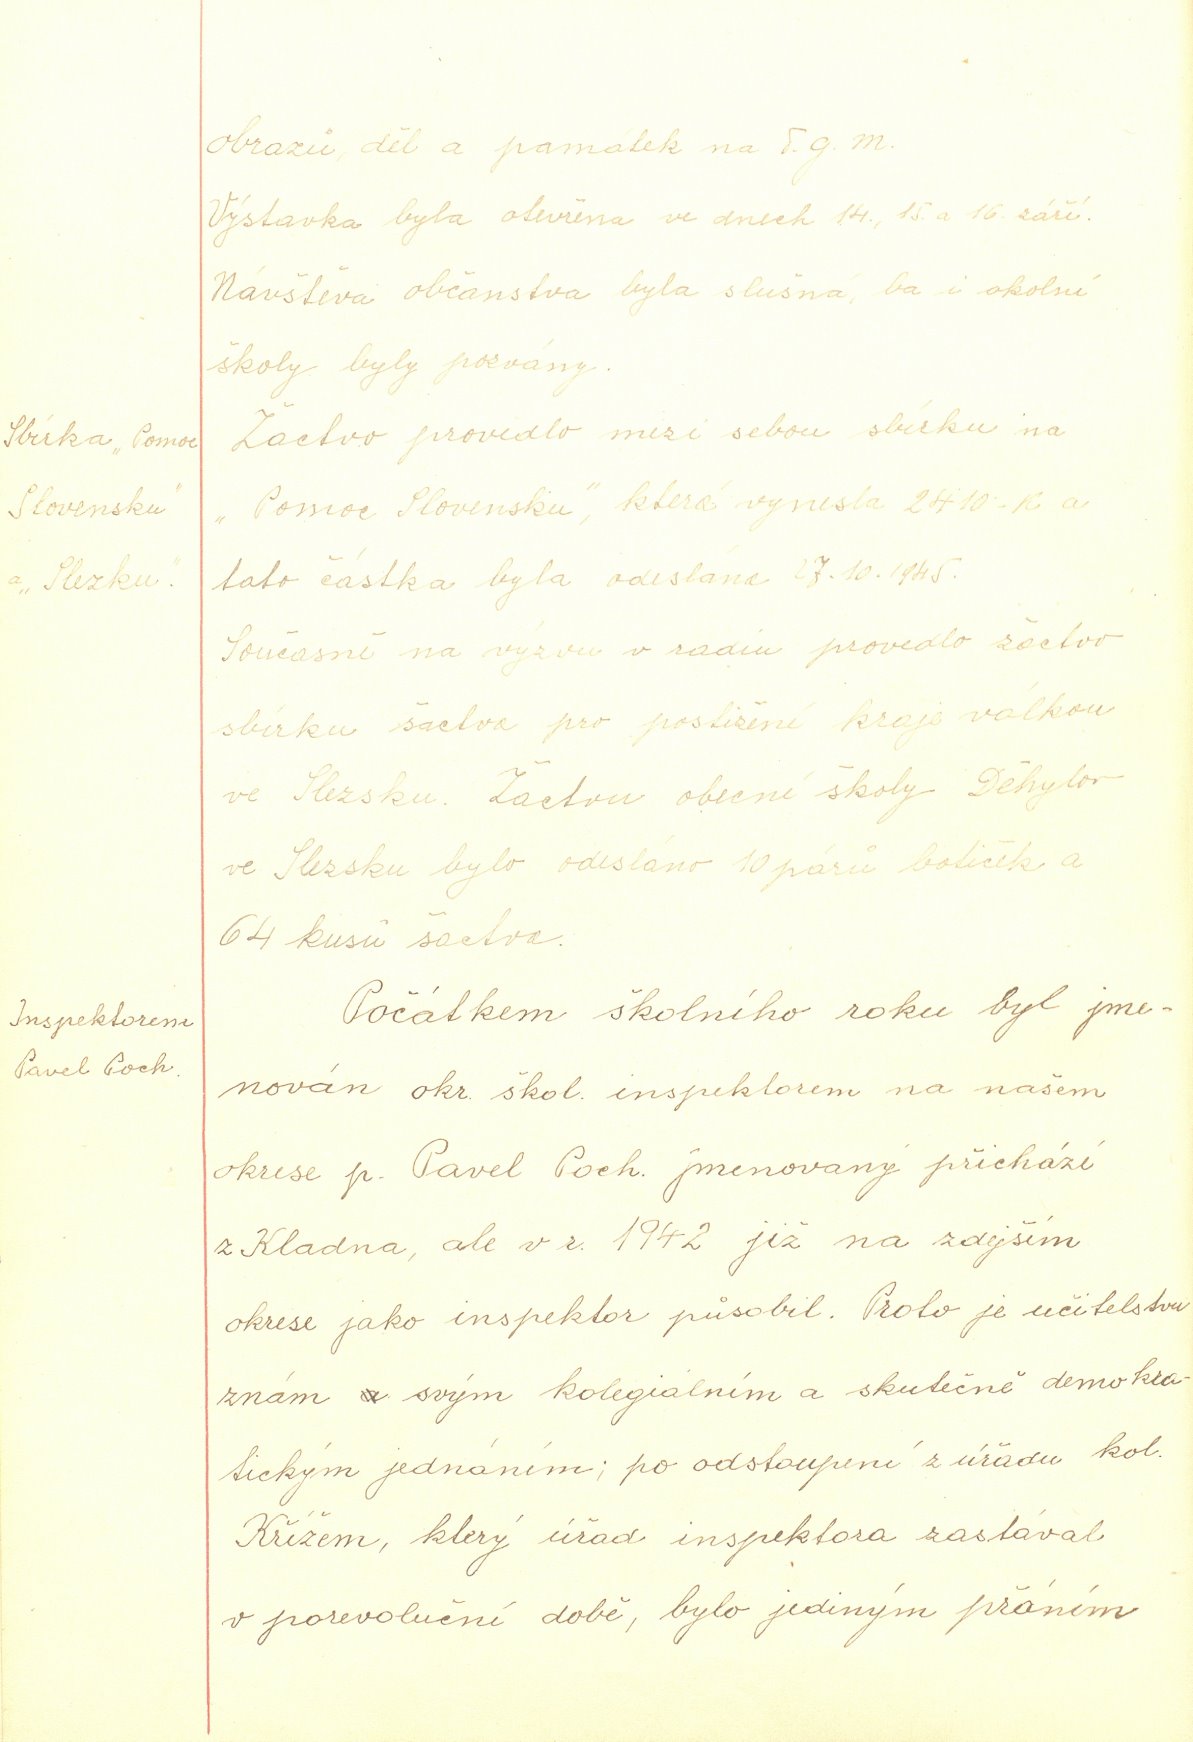 obrazů, děl a památek na T. G. M.
Výstavka byla otevřena ve dnech 14., 15. a 16. září.
Návštěva občanstva byla slušná, ba i okolní
školy byly pozvány.
Sbírka „Pomoc
Slovensku"
a „Slezku".
Žactvo provedlo mezi sebou sbírku na
„Pomoc Slovensku", která vynesla 2410.- K a
tato částka byla odeslána 27. 10. 1945.
Současně na výzvu v radiu provedlo žactvo
sbírku šactva pro postižení kraje válkou
ve Slezsku. Žactvu obecné školy Děhylov
ve Slezsku bylo odesláno 10 párů botiček a
64 kusů šactva.
Inspektorem
Pavel Poch.
Počátkem školního roku byl jme-
nován okr. škol. inspektorem na našem
okrese p. Pavel Poch. Jmenovaný přichází
z Kladna, ale v r. 1942 již na zdejším
okrese jako inspektor působil. Proto je učitelstvu
znám svým kolegiálním a skutečně demokra-
tickým jednáním; po odstoupení z úřadu kol.
Křížem, který úřad inspektora zastával
v porevoluční době, bylo jediným přáním